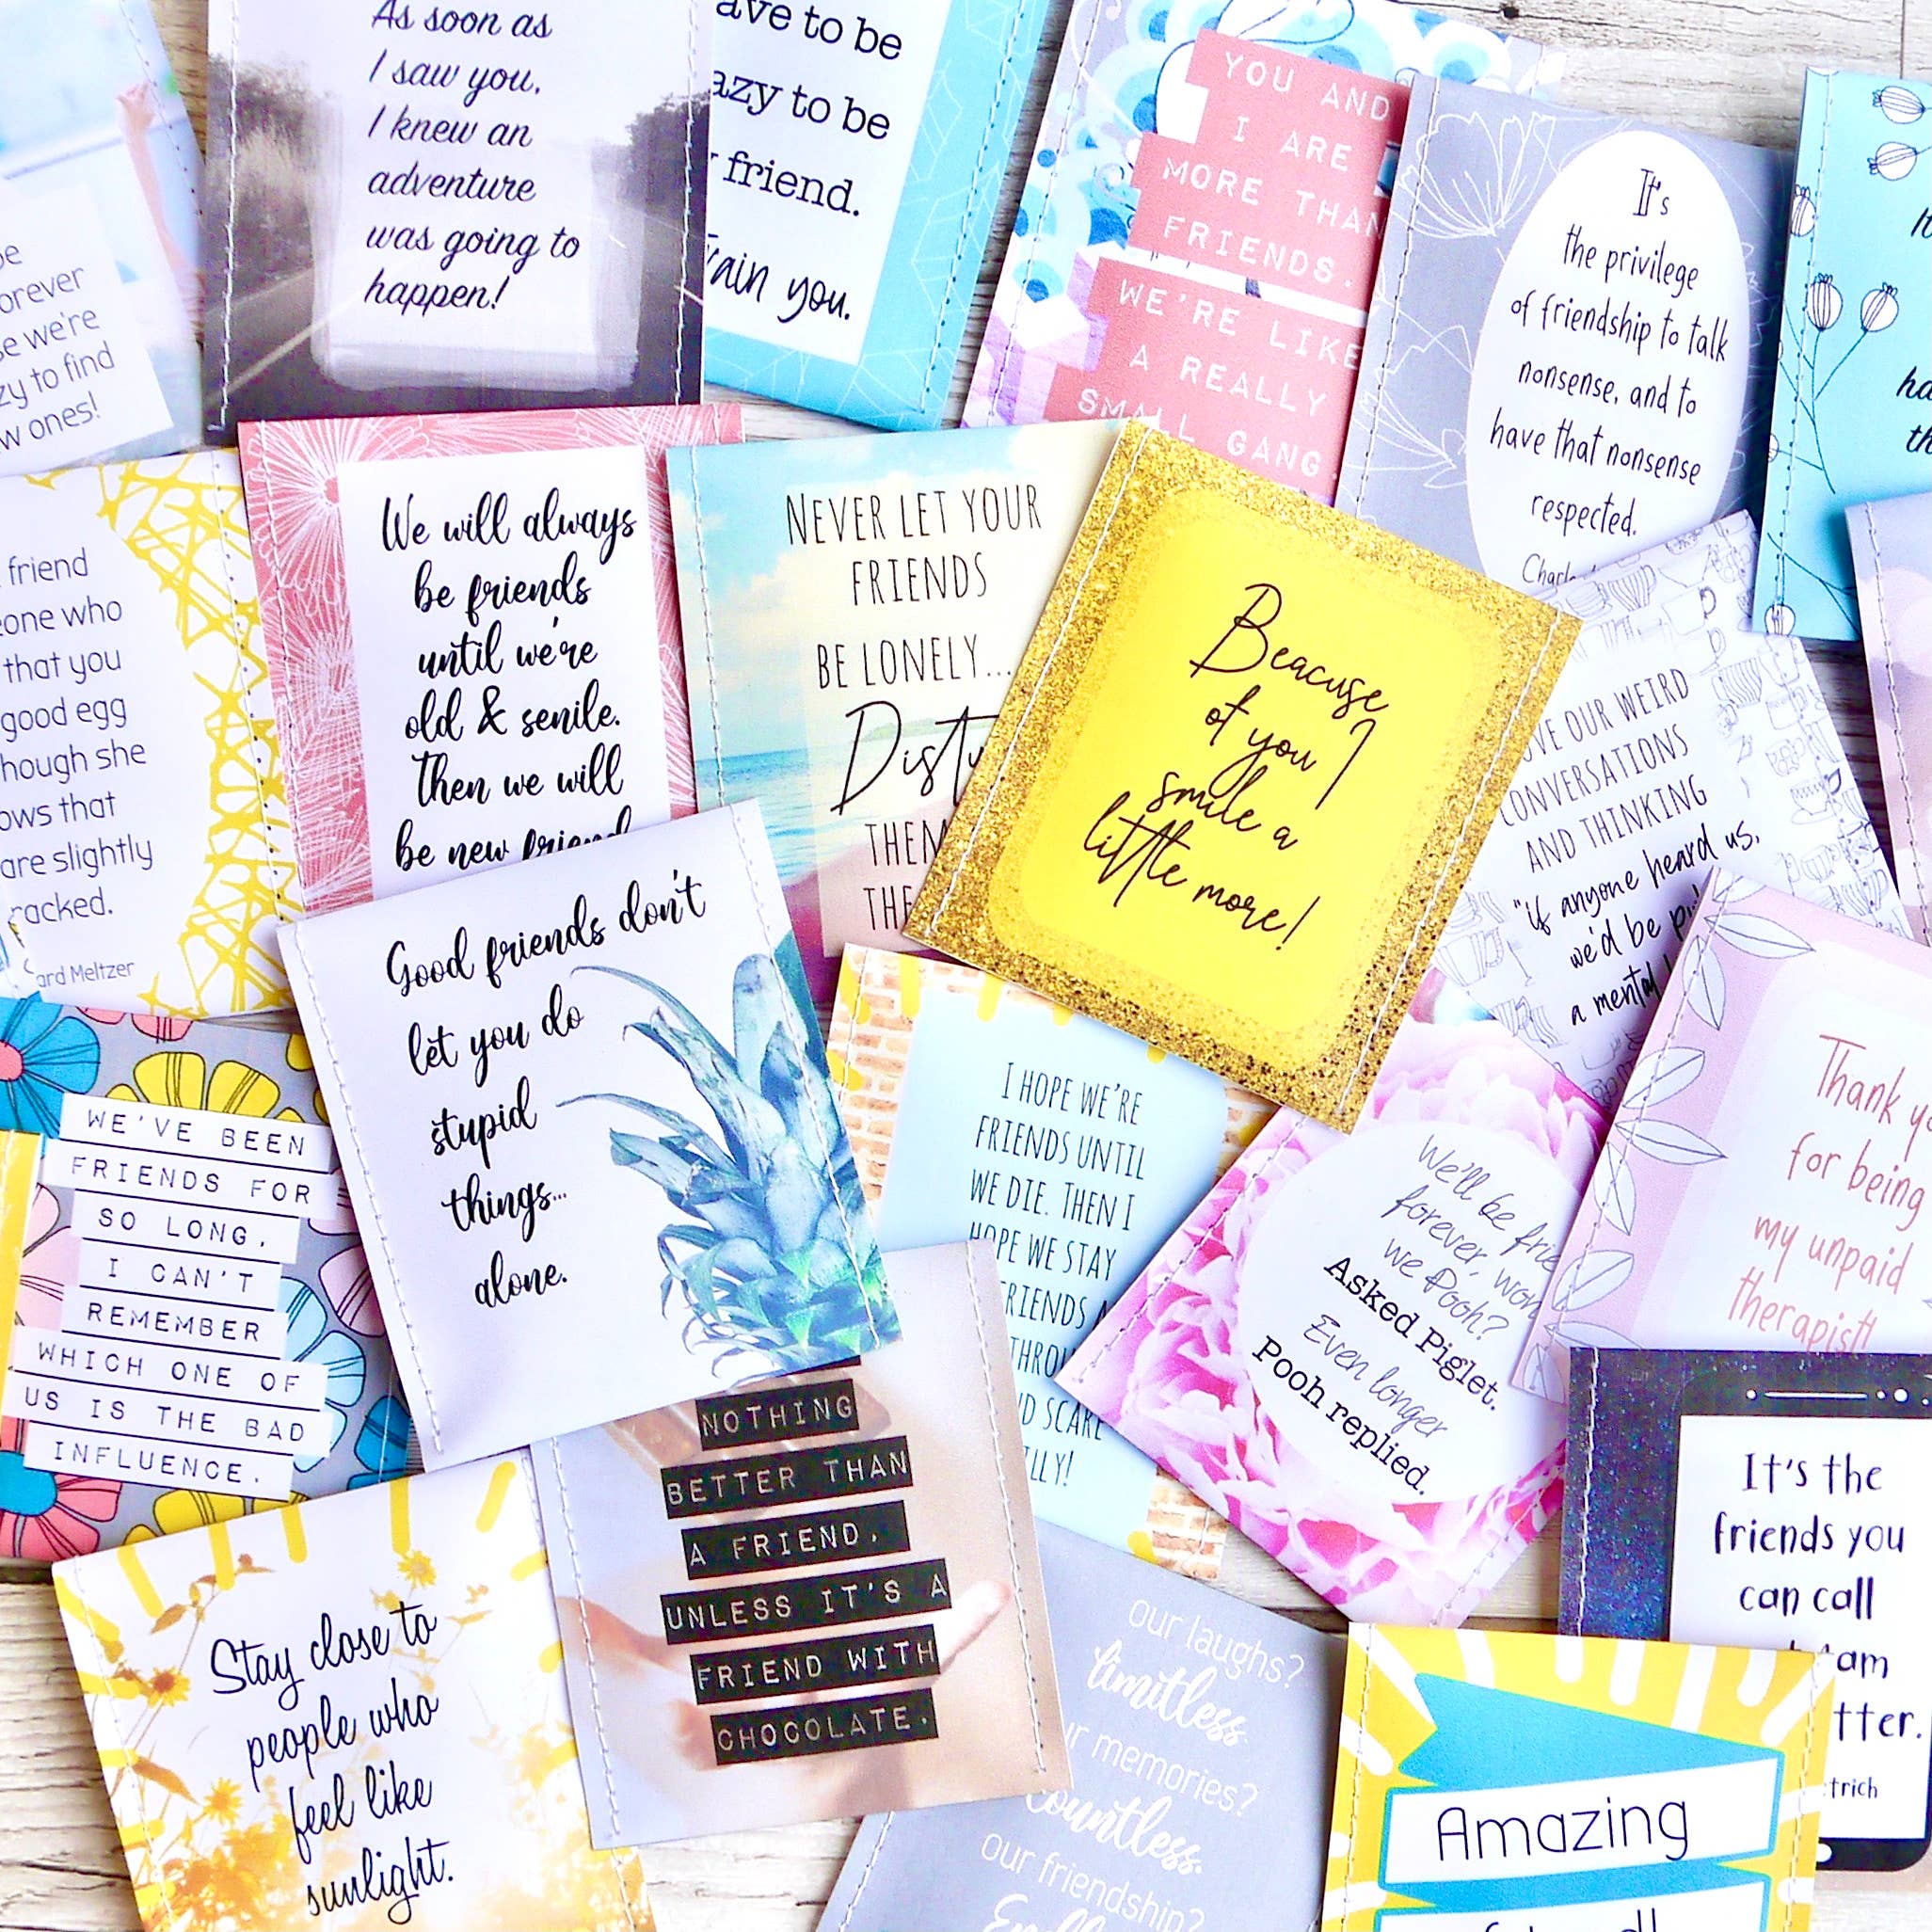 As soon as
I saw you,
I knew an
adventure
was going to
happen!
to be
to be
friend.
you.
YOU AND
I ARE
MORE THAN
FRIENDS.
WE'RE LIKE
A REALLY
SMALL GANG.
It's
the privilege
of friendship to talk
nonsense, and to
have that nonsense
respected.
we're
to find
ones!
friend
who
that you
good egg
though she
that
are slightly
Meltzer
We will always
be friends
until we're
old & senile.
Then we will
be new
NEVER LET YOUR
FRIENDS
BE LONELY...
Beacuse
of you I
smile a
little more!
OUR WEIRD
CONVERSATIONS
AND THINKING
"if anyone heard us,
we'd be
a mental
Good friends don't
let you do
stupid
things...
alone.
WE'VE BEEN
FRIENDS FOR
SO LONG,
I CAN'T
REMEMBER
WHICH ONE OF
US IS THE BAD
INFLUENCE.
I HOPE WE'RE
FRIENDS UNTIL
WE DIE. THEN I
HOPE WE STAY
We'll be
forever,
we Pooh?
Asked Piglet.
Even longer
Pooh replied.
Thank
for being
my unpaid
therapist!
NOTHING
BETTER THAN
A FRIEND,
UNLESS IT'S A
FRIEND WITH
CHOCOLATE.
It's the
friends you
can call
am
Stay close to
people who
feel like
sunlight.
our laughs?
limitless.
memories?
countless.
our friendship?
Amazing